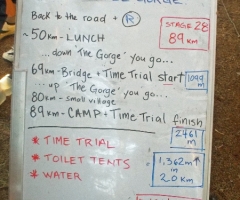 GORGE
Back to the road + R
STAGE 28
89 km
~50km - LUNCH
...down 'The Gorge' you go...
69km - Bridge + Time Trial start
1099 m
... up 'The Gorge' you go...
80km - small village
89km - CAMP + Time Trial finish
2461 m
* TIME TRIAL
* TOILET TENTS
* WATER
1,362m ↑
in
20km